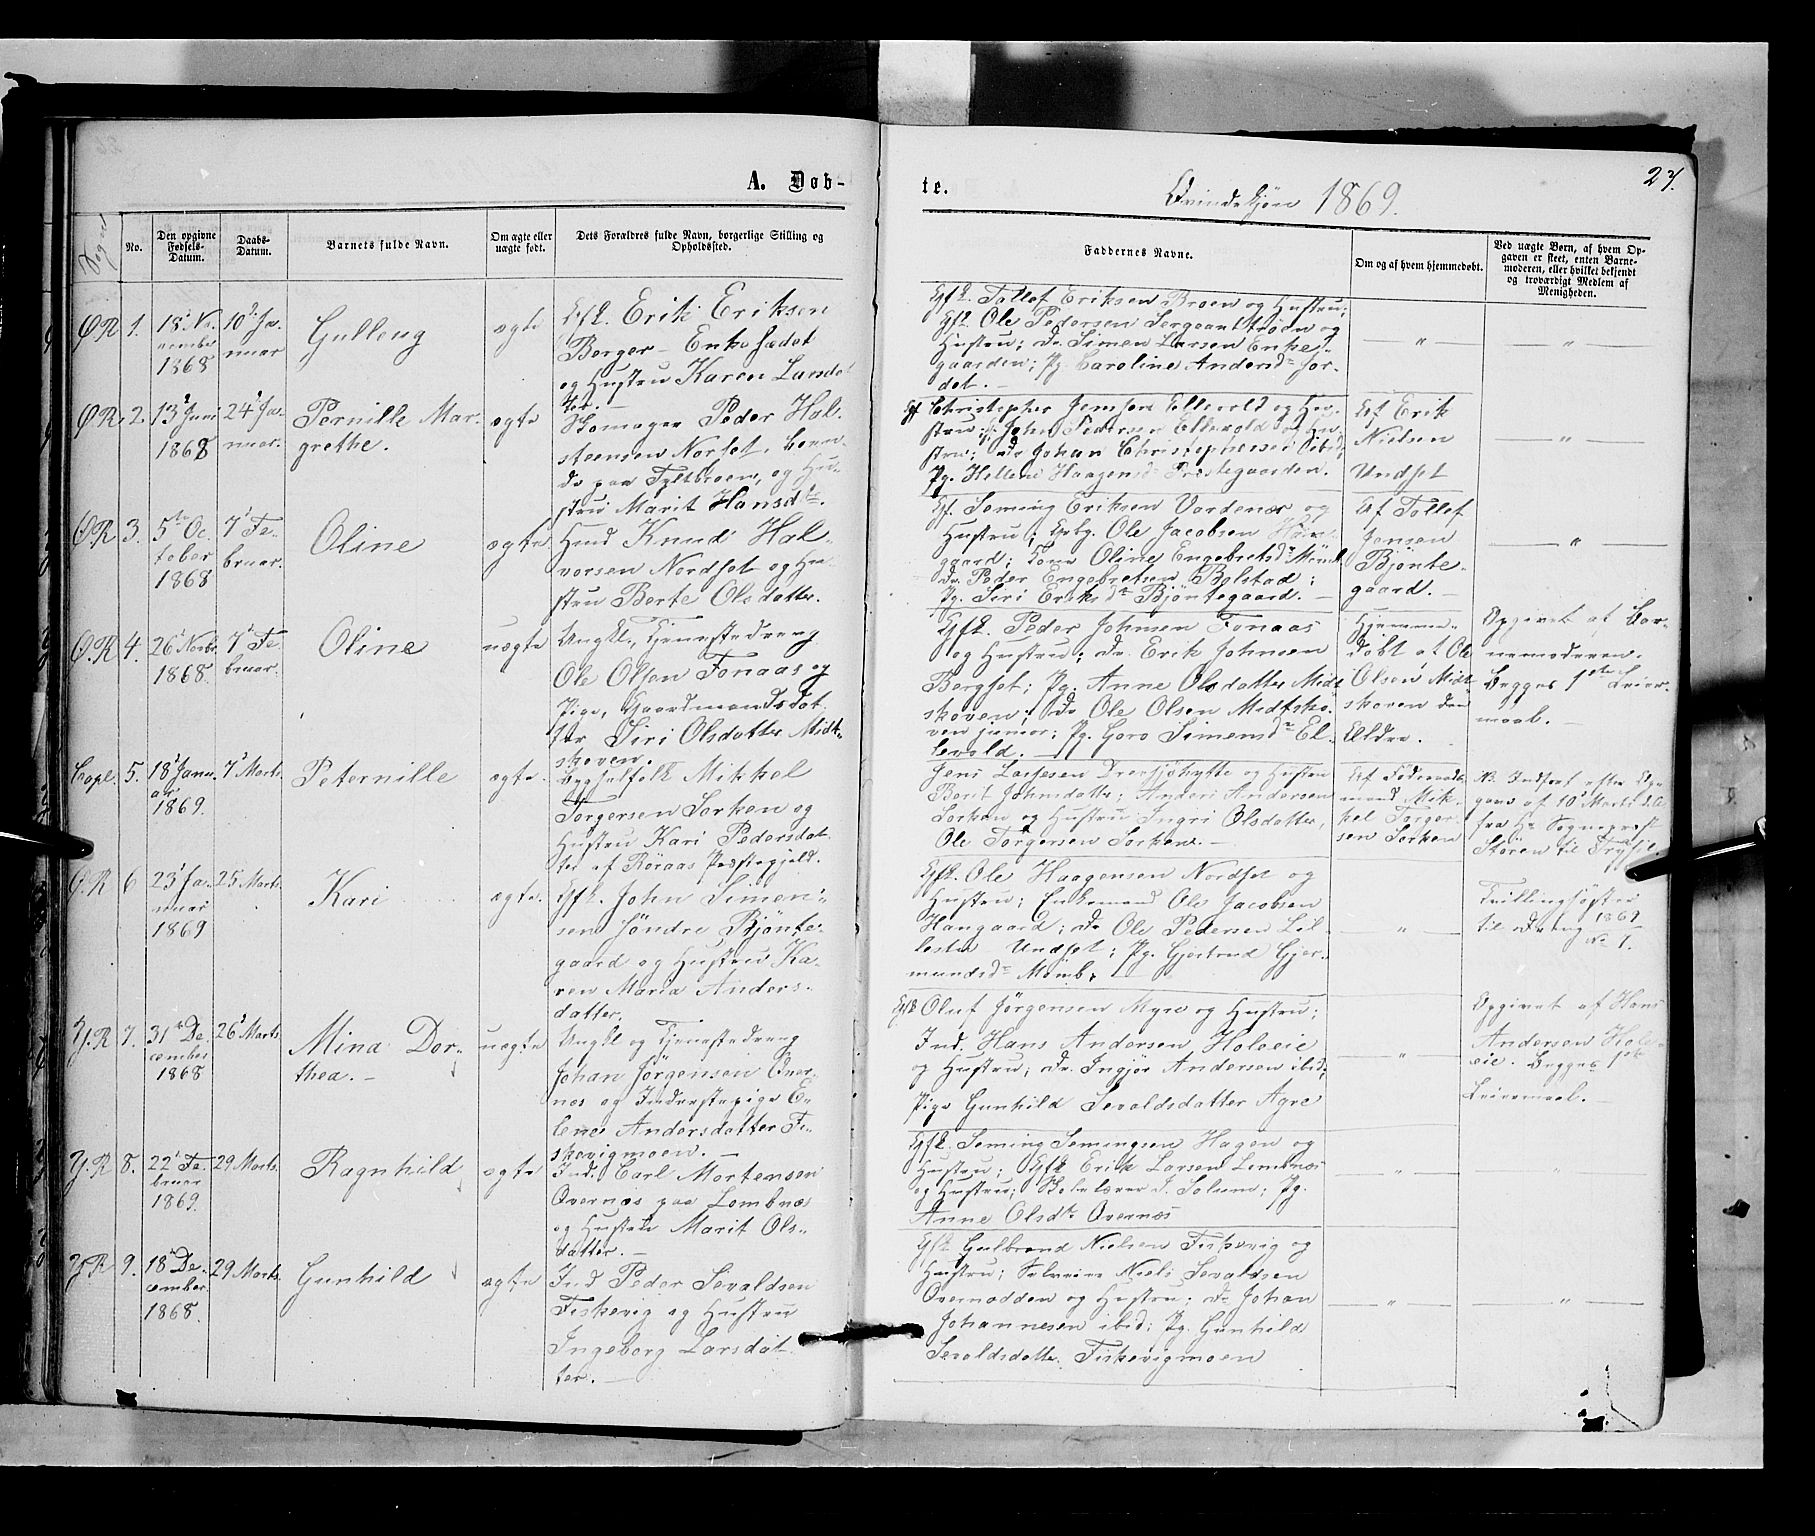 A. Døb-
te.
Qvindekjøn 1869.
27.
Sogn
No.
Den opgivne Fødsels-Datum.
Daabs-Datum.
Barnets fulde Navn.
Om ægte eller uægte født.
Dets Forældres fulde Navn, borgerlige Stilling og Opholdssted.
Faddernes Navne.
Om og af hvem hjemmedøbt.
Ved uægte Børn, af hvem Op-
gaven er skeet, enten Barne-
moderen, eller hvilket bekjendt
og troværdigt Medlem af
Menigheden.
ØR 1.
18de No
vember
1868
10de Ja
nuar
Gulloug
ægte
Gfk. Erik Eriksen
Berger - Enkesædet
og Hustru Karen Lands
Gfk. Tollef Eriksen Broen og Hustru;
Gfk. Ole Pedersen Sergeanttrøen og
Hustru; Dr. Simen Larsen Enke-
gaarden; Pg. Caroline Andersdr Jor-
det. -
— " —
— " —
ØR 2.
13de Juni
1868
24de Ja-
nuar.
Pernille Mar-
grethe.
ægte
Skomager Peder Hal-
steensen Norset, boen-
de paa Tyltbroen, og Hu-
stru Marit Hansdtr.
Gf Christopher Jensen Ellevold og Hu-
stru; Gf. John Pedersen Ellevold og Hu-
stru; Dr Johan Christophersen ibid;
Pg. Hellene Haagensdr Prestegaarden.
Af Erik
Nielsen
Undset
— " —
ØR 3.
5te Oc
tober
1868
7de Fe
bruar.
Oline
ægte
Hmd Knud Hal-
vorsen Nordset og Hu-
stru Berte Olsdatter.
Gf. Seming Eriksen Vordenæs og
Hustru; Ole Jacobsen
gaard; Kone Oline Engebretsdr
Dr. Peder Engebretsen Bolstad;
Pg. Siri Eriksdr Bjøntegaard. -
Af Tollef
Jensen
Bjønte-
gaard. -
— " —
ØR 4.
26de Novbr.
1868.
7de Fe
bruar.
Oline
uægte
Ungkl., Tjenestedreng
Ole Olsen Fonaas og
Pige, Gaardmandsdat
ter Siri Olsdatter Midt-
skoven.
Gfk. Peder Johnsen Fonaas
og Hustru; Dr. Erik Johnsen
Bergset; Pg. Anne Olsdatter Midt
skoven; Dr Ole Olsen Midtsko-
ven junior; Pg. Goro Simensdr El-
levold. -
Hjemme-
døbt af Ole
Olsen Midt
skoven den
Ældre.
Opgivet af Bar-
nemoderen.
Begges 1ste Leier-
maal. -
Copl. 5.
18de Janu
ar
1869.
7de Marts
Peternille
ægte.
Bygselfolk Mikkel
Torgersen Sorken og
Hustru Kari Pedersdat
ter af Røraas Præstegjeld.
Jens Larsesen Drevsjøhytte og Hustru
Berit Johnsdatter; Anders Andersen
Sorken og Hustru Ingri Olsdatter,
Ole Torgersen Sorken. -
Af Føderaads
mand Mik-
kel Torger-
sen Sorken
NB. Indført efter Op-
gave af 10 Marts d.A.
fra Hr Sogneprest
Støren til Trysil.
Ø.R 6
23de Ja
nuar
1869
25 Marts.
Kari
ægte.
Gfk. John Simen-
sen Søndre Bjønte-
gaard og Hustru Ka-
ren Maria Anders-
datter.
Gfk. Ole Haagensen Nordset og
Hustru; Enkemand Ole Jacobsen
Haugaard; Dr Ole Pedersen Lil-
lestu Undset; Pg. Gjertrud Gjer-
mundsdr Momb.
— " —
Tvillingsøster
til Dreng 1869
No 1.
Y.R 7.
31te De
cember
1868
26de Marts.
Mina Dor-
thea. -
uægte
Ungkl og Tjenestedreng
Johan Jørgensen Øver-
næs og Inderstepige E-
lene Andersdatter Fi-
skevigmoen. -
Gfk Oluf Jørgensen Myre og Hustru;
Ind. Hans Andersen Holeeie
og Hustru; Dr. Ingjør Andersen ibid;
Pige Gunhild Sevaldsdatter Agre
— " —
Opgivet af Hans
Andersen Hole-
eie. Begges 1ste
Leiermaal. -
Y.R 8.
22de Fe
bruar
1869.
29 Marts.
Ragnhild
ægte
Ind. Carl Mortensen
Øvernæs paa Lombnæs
og Hustru Marit Ols-
datter. -
Gfk. Seming Semingsen Hagen og
Hustru; Gfk Erik Larsen Lombnæs
og Hustru; Skolelærer J. Solum; Pg.
Anne Olsdtr Øvernæs
— " —
"
Y.R 9.
18de De-
cember
1868
29 Marts.
Gunhild
ægte
Ind Peder Sevaldsen
Fiskevig og Hustru
Ingeborg Larsdat
ter. -
Gfk Gulbrand Nielsen Fiskevig og
Hustru; Selveier Niels Sevaldsen
Øvernodden og Hustru; Dr Johan
Johannesen ibid; Pg. Gunhild
Sevaldsdatter Fiskevigmoen
— " —
— " —